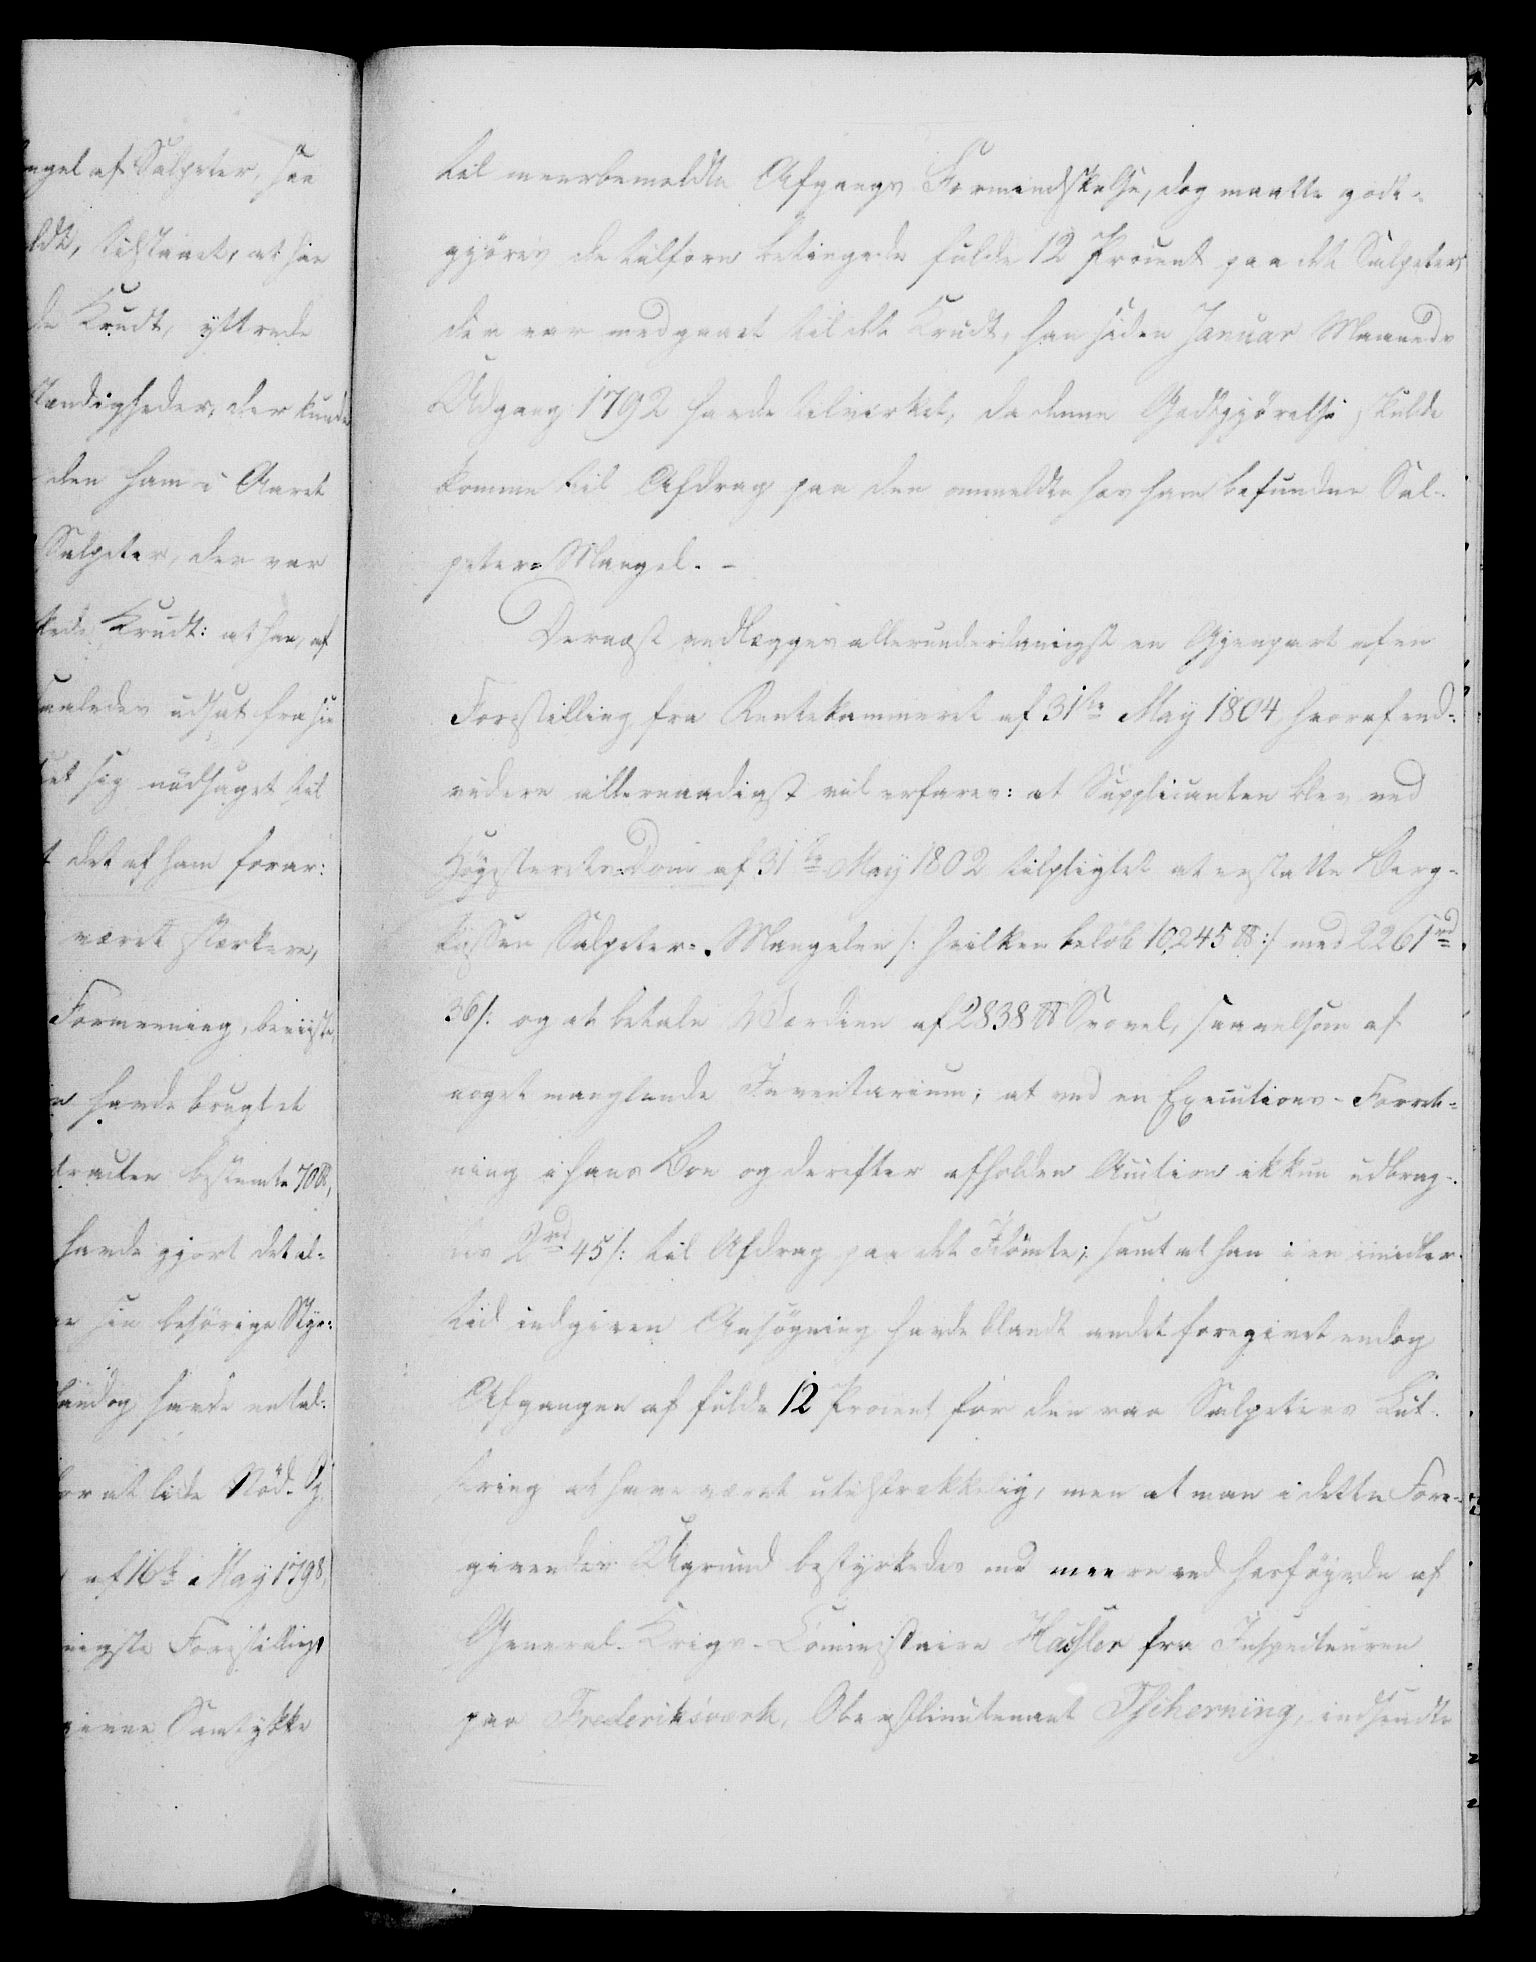 ngel af Salpeter, saa
ldt, tilstaaet, at han
de Krudt, yttrede
tændigheder, der kunde
den ham i Aaret
Salpeter, der var
kede Krudt: at han, af
saaledes udsat fra sin
set sig nödsaget til
t det af ham forar:
været stærkere,
Formening, beviiste,
n havde brugt et
tracten bestemte 70 ℔,
havde gjort det al-
e sin behörige Styr:
endog havde ental-
for at lide Nöd.
af 16de May 1798,
nigste Forestilling
givne Samtykke
til meerbemeldte Afgangs Formindskelse, dog maatte godt-
gjöres de tilforn betingede fulde 12 Procent paa det Salpeter
der var medgaaet til det Krudt, han siden Januar Maaneds
Udgang 1792 havde tilvirket, da denne Godtgjörelse skulde
komme til Afdrag paa den anmeldte hos ham befundne Sal-
peter-Mangel. -
Dernæst vedlægges allerunderdanigst en Gjenpart af en
Forestilling fra Rentekammeret af 31te May 1804, hvoraf end-
videre allernaadigst vil erfares: at Supplicanten blev ved
Höyesterets-Dom af 31te May 1802 tilpligtet at erstatte Berg-
kassen Salpeter-Mangelen /: hvilken belöb 10,245 ℔ :/ med 2261 rd
36 s: og at betale Værdien af 2838 ℔ Svovel, saavelsom af
noget manglende Inventarium; at ved en Executions-Forret-
ning i hans Boe og derefter afholden Auction ikkun udbrag-
tes 2 rd 45 s: til Afdrag paa det Idömte; samt at han i en imidler-
tid indgiven Ansögning havde blandt andet foregivet endog
Afgangen af fulde 12 Procent for den raa Salpeters Lut-
tring at have været utilstrækkelig, men at man i dette Fore-
givendes Ugrund bestyrkedes end meere ved hosföyede af
General-Krigs-Commissaire Hassler fra Inspecteuren
paa Frederiksværk, Oberstlieutenant Tscherning, indsendte